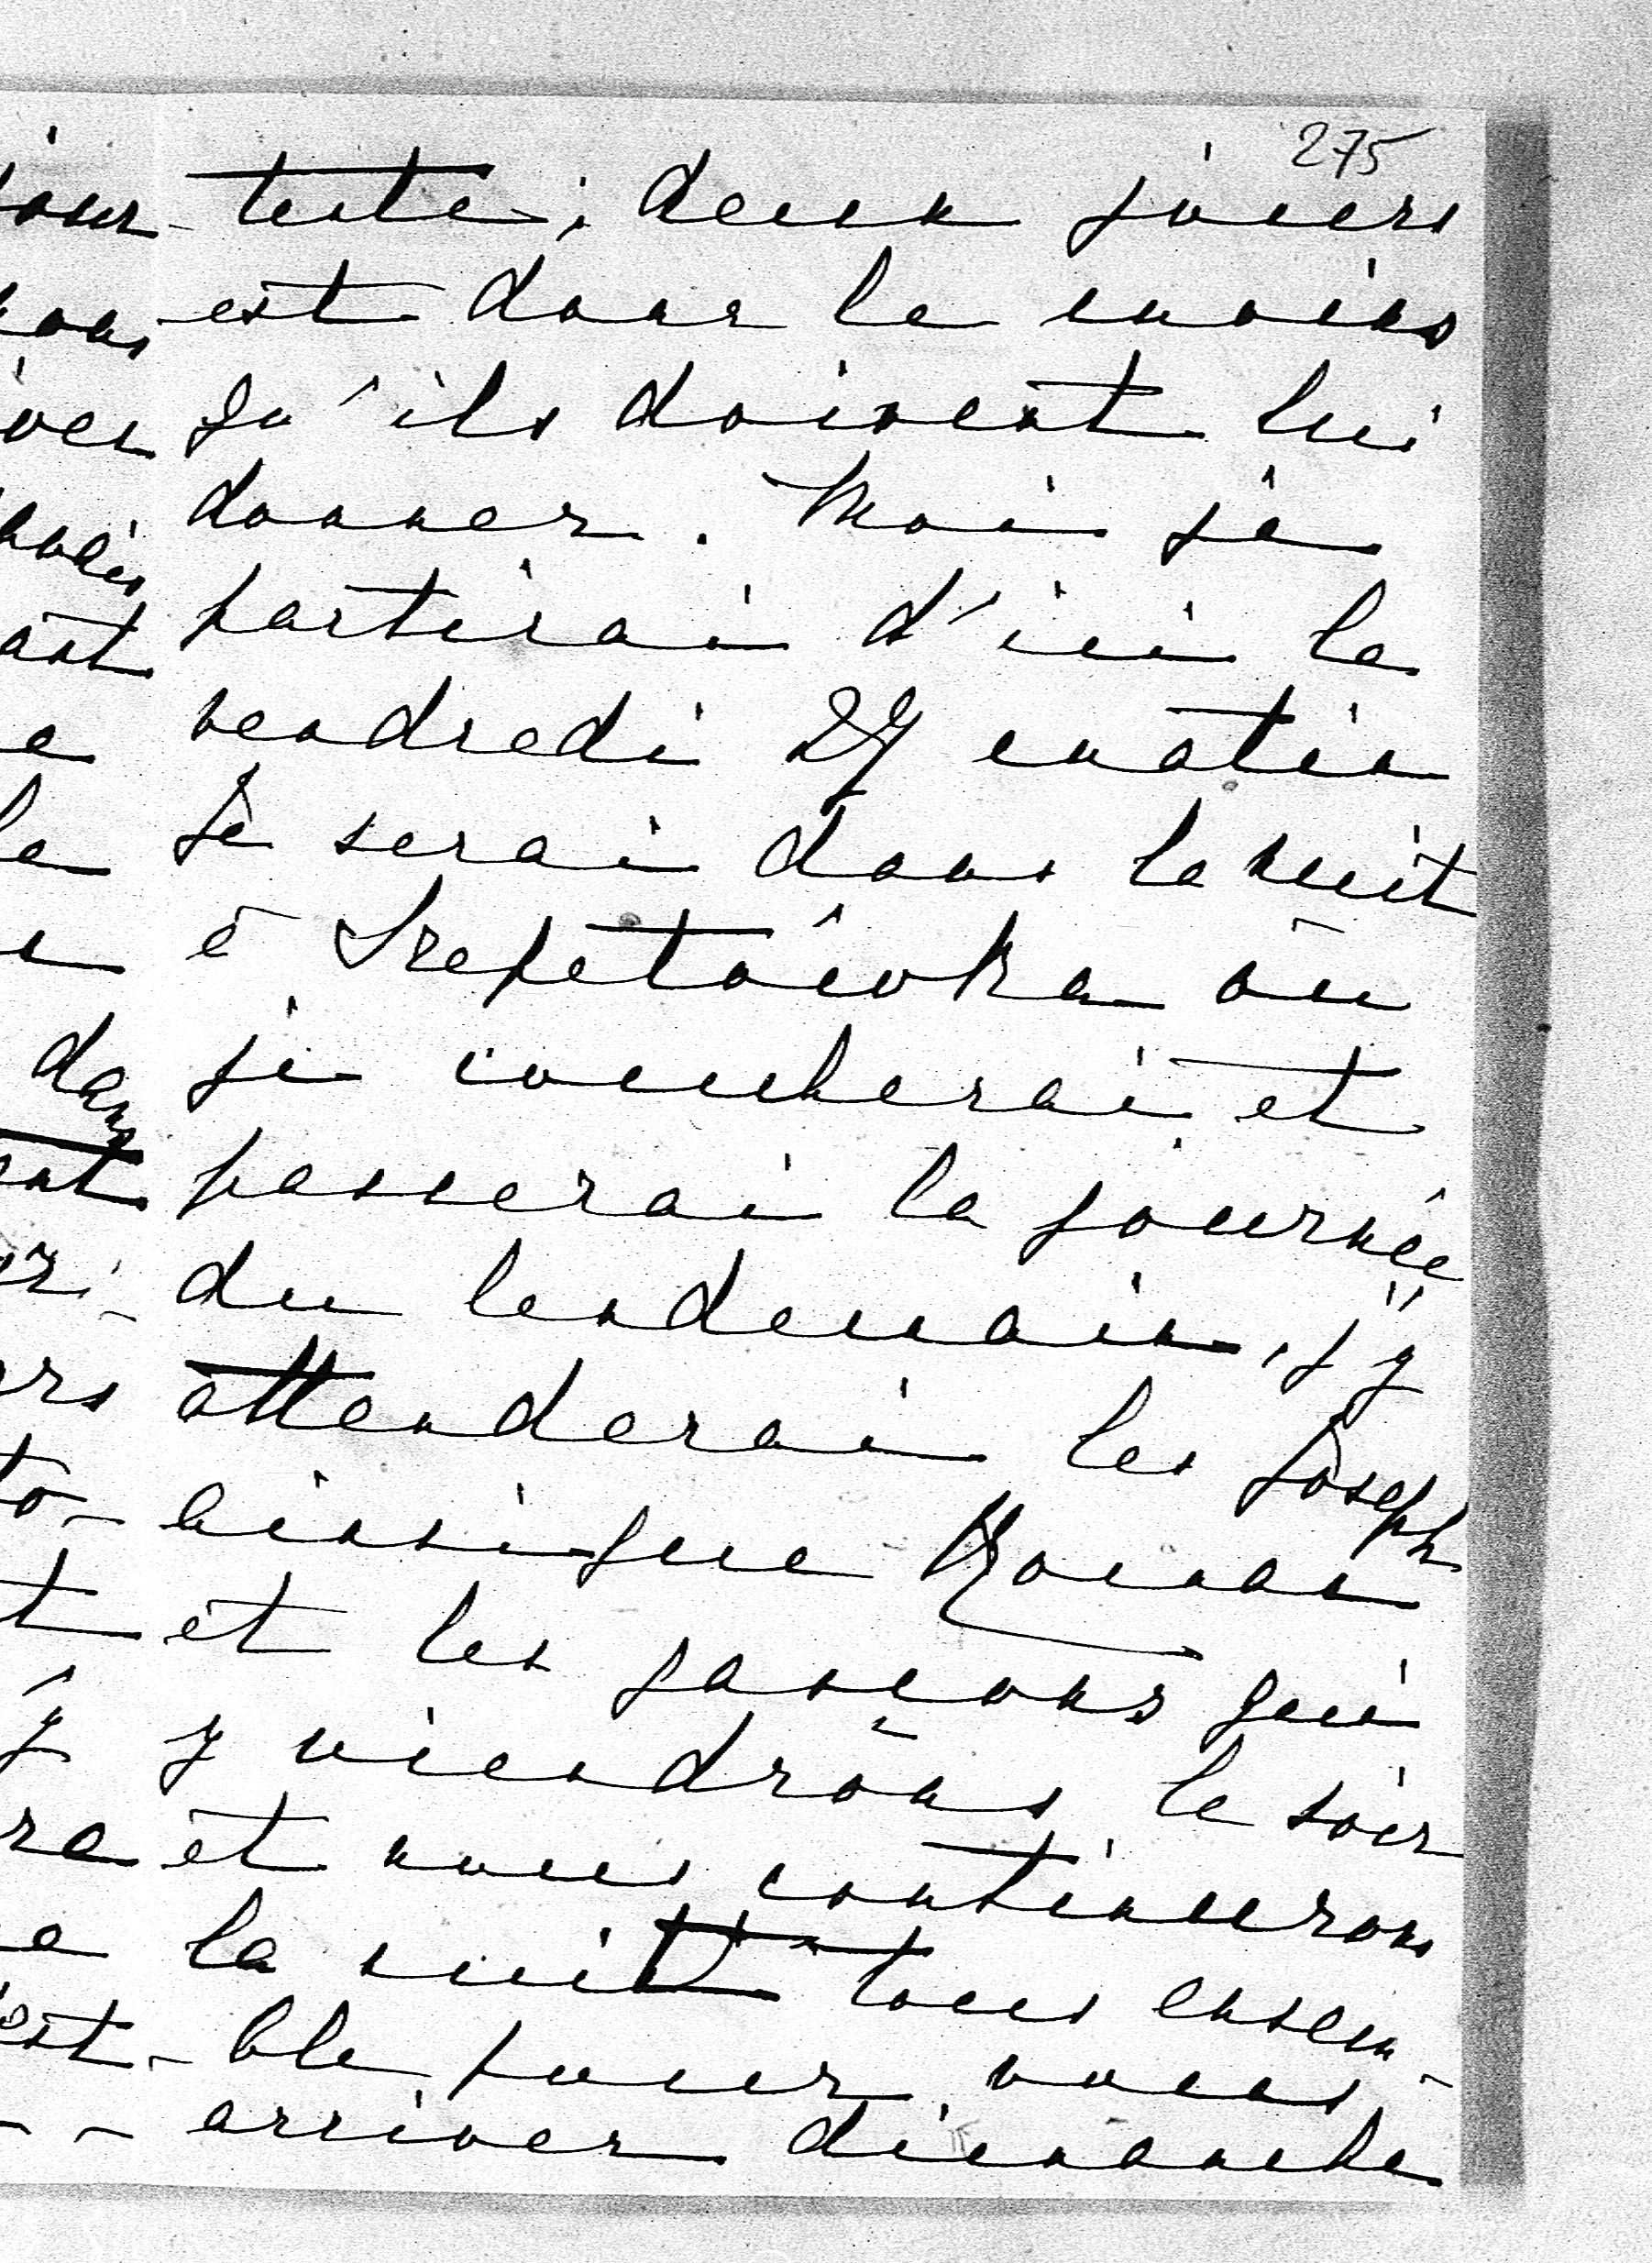 275
deux jours
est donc le moins
qu'ils doivent lui
donner. Moi je
partirai d'ici le
vendredi 27 matin
Je serai dans la nuit
à Szepetówka où
je coucherai et
passerai la journée
du lendemain, j'y
attenderai les Joseph
ainsi que Roman
et les garçons qui
y viendrons le soir
et nous continuerons
la nuit tous ensem-
ble pour vous
arriver dimanche